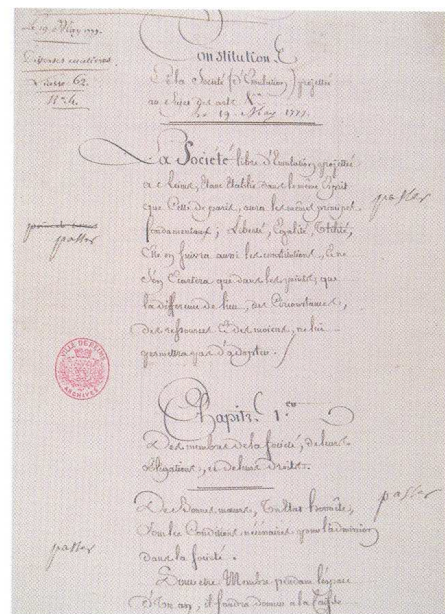 Le 19. May 1777.
Diverses matieres.
Liasse 62.
N.º 4.
Constitution
De la Société (d'Emulation) projettée
a Reims
Le 19. May 1777.
La Société libre d'Emulation, projettée
a Reims, étant établie dans le même Esprit
que Celle de paris, aura les mêmes principes
fondamentaux; Liberté, Egalité, Utilité,
Elle en suivra aussi les constitutions, et ne
s'en Ecartera que dans les points, que
la difference du lieu, des Circonstances,
des ressources et des moiens, ne lui
permettra pas d'adopter.
passer
passer
VILLE DE REIMS
ARCHIVES
Chapitre 1.er
Des membres de la société, de leurs
Obligations, et de leurs Droits.
De Bonnes mœurs, Un Etat honnête,
sont les Conditions nécessaires pour l'admission
dans la société.
passer
passer
Pour etre Membre pendant l'espace
d'Un an, il faudra donner a la